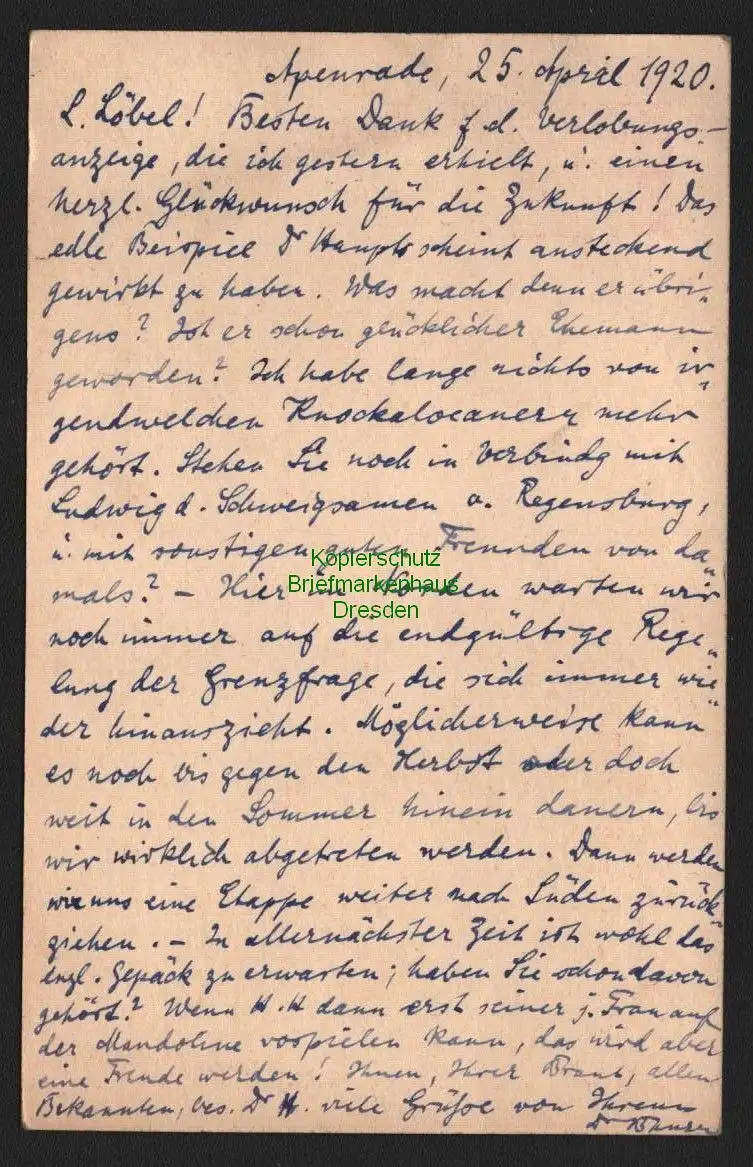 Apenrade, 25. April 1920.
L. Löbel! Besten Dank f. d. Verlobungs-
anzeige, die ich gestern erhielt, u. einen
herzl. Glückwunsch für die Zukunft! Das
edle Beispiel Dr Haupts scheint ansteckend
gewirkt zu haben. Was macht denn er übri-
gens? Ist er schon glücklicher Ehemann
geworden? Ich habe lange nichts von ir-
gendwelchen Knockaloeanern mehr
gehört. Stehen Sie noch in Verbindg mit
Ludwig d. Schweigsamen a. Regensburg,
u. mit sonstigen guten Freunden von da-
mals? – Hier im Norden warten wir
noch immer auf die endgültige Rege-
lung der Grenzfrage, die sich immer wie-
der hinauszieht. Möglicherweise kann
es noch bis gegen den Herbst oder doch
weit in den Sommer hinein dauern, bis
wir wirklich abgetreten werden. Dann werden
wir uns eine Etappe weiter nach Süden zurück-
ziehen. – In allernächster Zeit ist wohl das
engl. Gepäck zu erwarten; haben Sie schon davon
gehört? Wenn H. H dann erst seiner j. Frau auf
der Mandoline vorspielen kann, das wird aber
eine Freude werden! Ihnen, Ihrer Braut, allen
Bekannten, bes. Dr H. viele Grüße von Ihrem
Dr
Kopierschutz
Briefmarkenhaus
Dresden